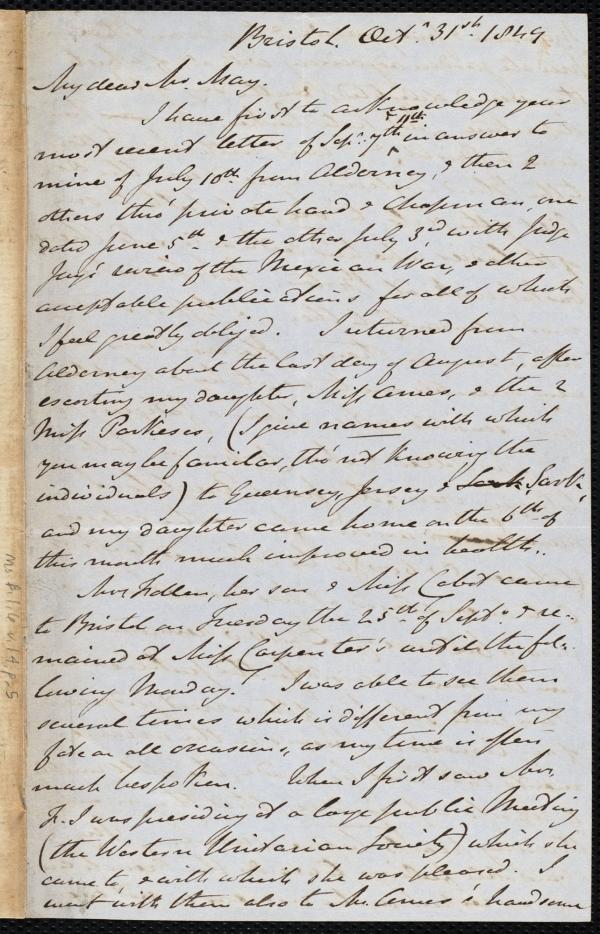 Bristol. Octr. 31st. 1849
My dear Mr. May.
I have first to acknowledge your
11th
most recent letter of Sepr. 7th in answer to
mine of July 10th from Alderney, & then 2
others thro' private hand & Chapman, one
dated June 5th & the other July 3rd, with Judge
Jay's review of the Mexican War, & other
acceptable publications for all of which
I feel greatly obliged. I returned from
Alderney about the last day of August, after
escorting my daughter, Miss Ames, & the 2
Miss Parkeses, (I give names with which
you may be familiar, tho' not knowing the
individuals) to Guernsey, Jersey & Sark Sark,
and my daughter came home on the 6th of
this month much improved in health.
Mrs Follen, her son & Miss Cabot came
to Bristol on Tuesday the 25th of Septr. & re-
mained at Miss Carpenter's until the fol-
lowing Monday. I was able to see them
several times which is different from my
fate on all occasions, as my time is often
much bespoken. When I first saw Mrs
F. I was presiding at a large public Meeting
(the Western Unitarian Society) which she
came to, & with which she was pleased. I
went with them also to Mr. Ames's handsome
Ms B.1.6 v.14 p.5